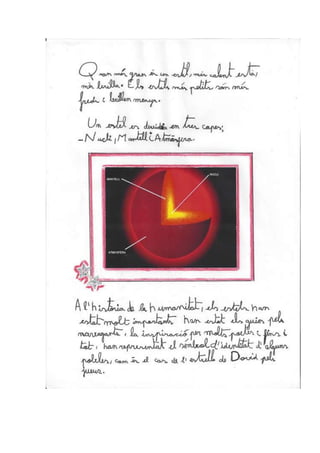 Quan més gran és un estel, més calent està i
més brilla. Els estels més petits són més
freds i brillen menys.
Un estel es divideix en tres capes;
-Nucli, Mantell i Atmòsfera.
MANTELL
NUCLI
ATMOSFERA
A l'història de la humanitat, els estels han
estat molt importants han estat els guies pels
navegants, la inspiració per molts poetes i fins i
tot, han representat el símbol d'identitat d'alguns
pobles, com és el cas de l'estrella de David pels
jueus.